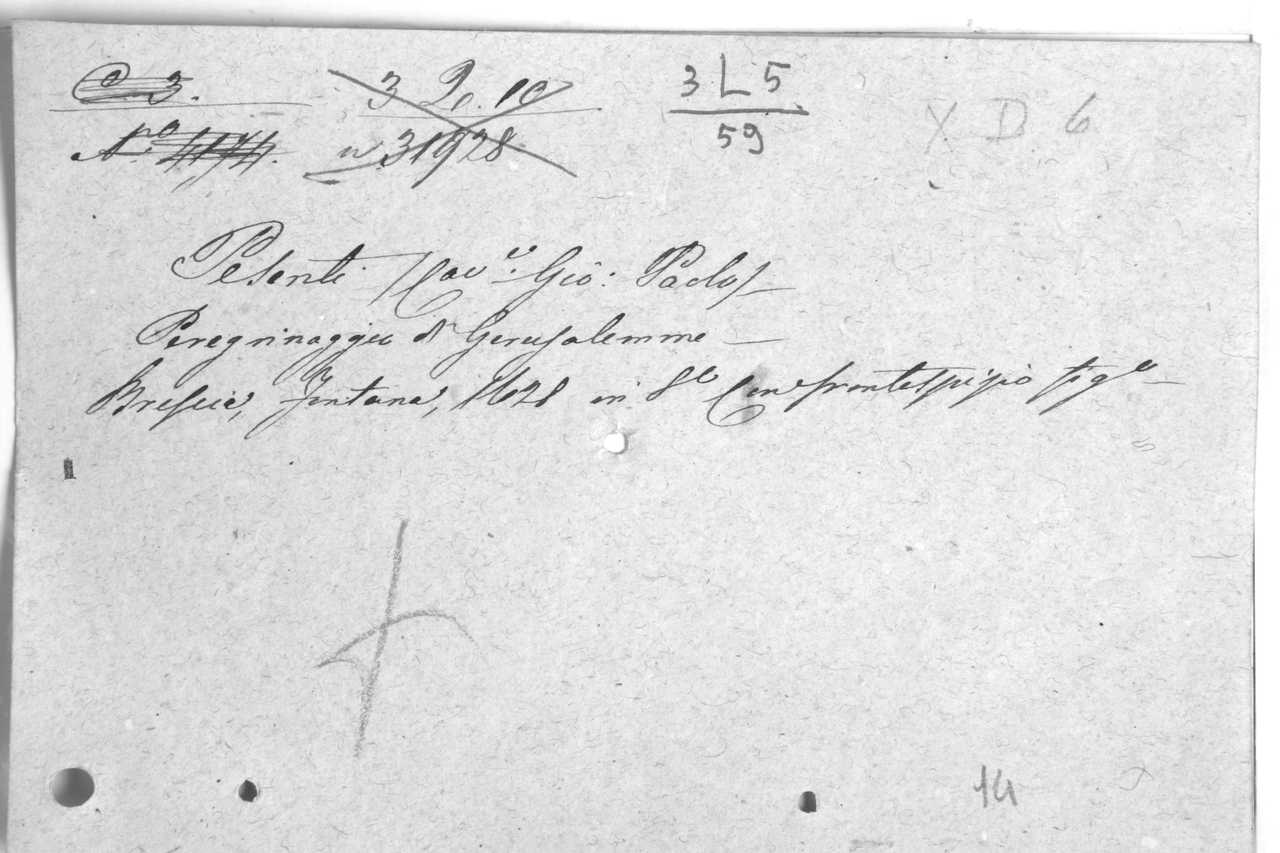 C 3.
3 Q. 10
3 L 5
Y. D. 6
N.º 4174.
n. 31928
59
Pesenti /Cav.e Gio: Paolo/ —
Peregrinaggio di Gerusalemme —
Brescia, Fontana, 1628 in 8º Con frontespizio fig.º —
14